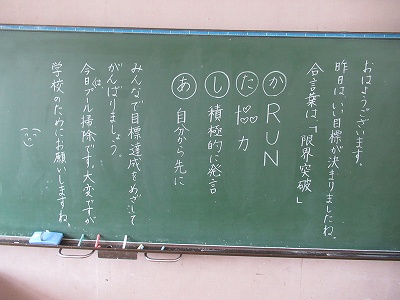 おはようございます。
昨日はいい目標が決まりましたね。
合言葉は「限界突破」
か RUN
た 協力
し 積極的に発言
あ 自分から先に
みんなで目標達成をめざして
がんばりましょう。
今日はプール掃除です。大変ですが
学校のためにお願いしますね。